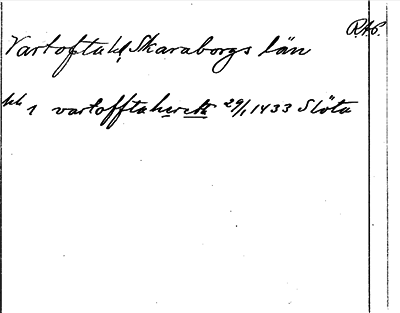 R.A.P.
Vartofta hd, Skaraborgs län
1 vartofftaherett 29/1 1433 Slöta